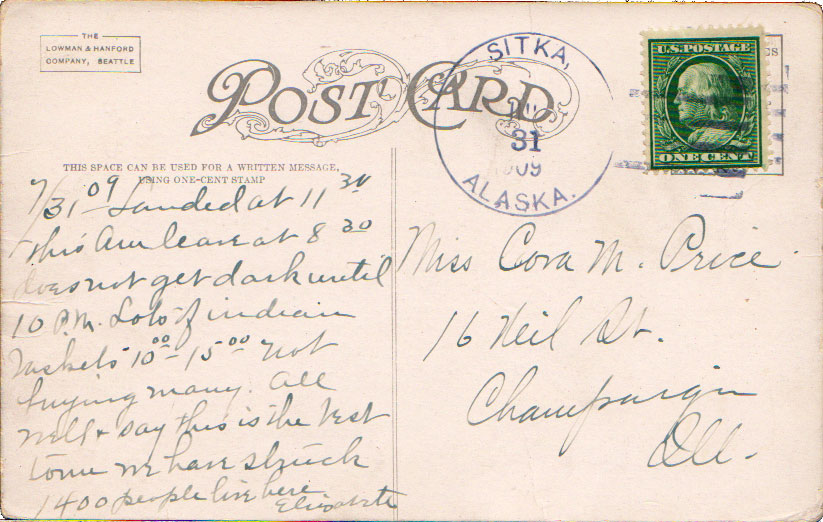 THE
LOWMAN & HANFORD
COMPANY, SEATTLE
POST CARD
SITKA,
31
ALASKA.
U.S. POSTAGE
ONE CENT
THIS SPACE CAN BE USED FOR A WRITTEN MESSAGE,
USING ONE-CENT STAMP
7/31 09 Landed at 11 30
this Am leave at 8 30
does not get dark until
10 P.M. Lots of indian
baskets 10 00 - 15 00 not
buying many. All
well & say this is the best
town we have struck
1400 people live here
Elizabeth
Miss Cora M. Price
16 Neil St.
Champaign
Ill.